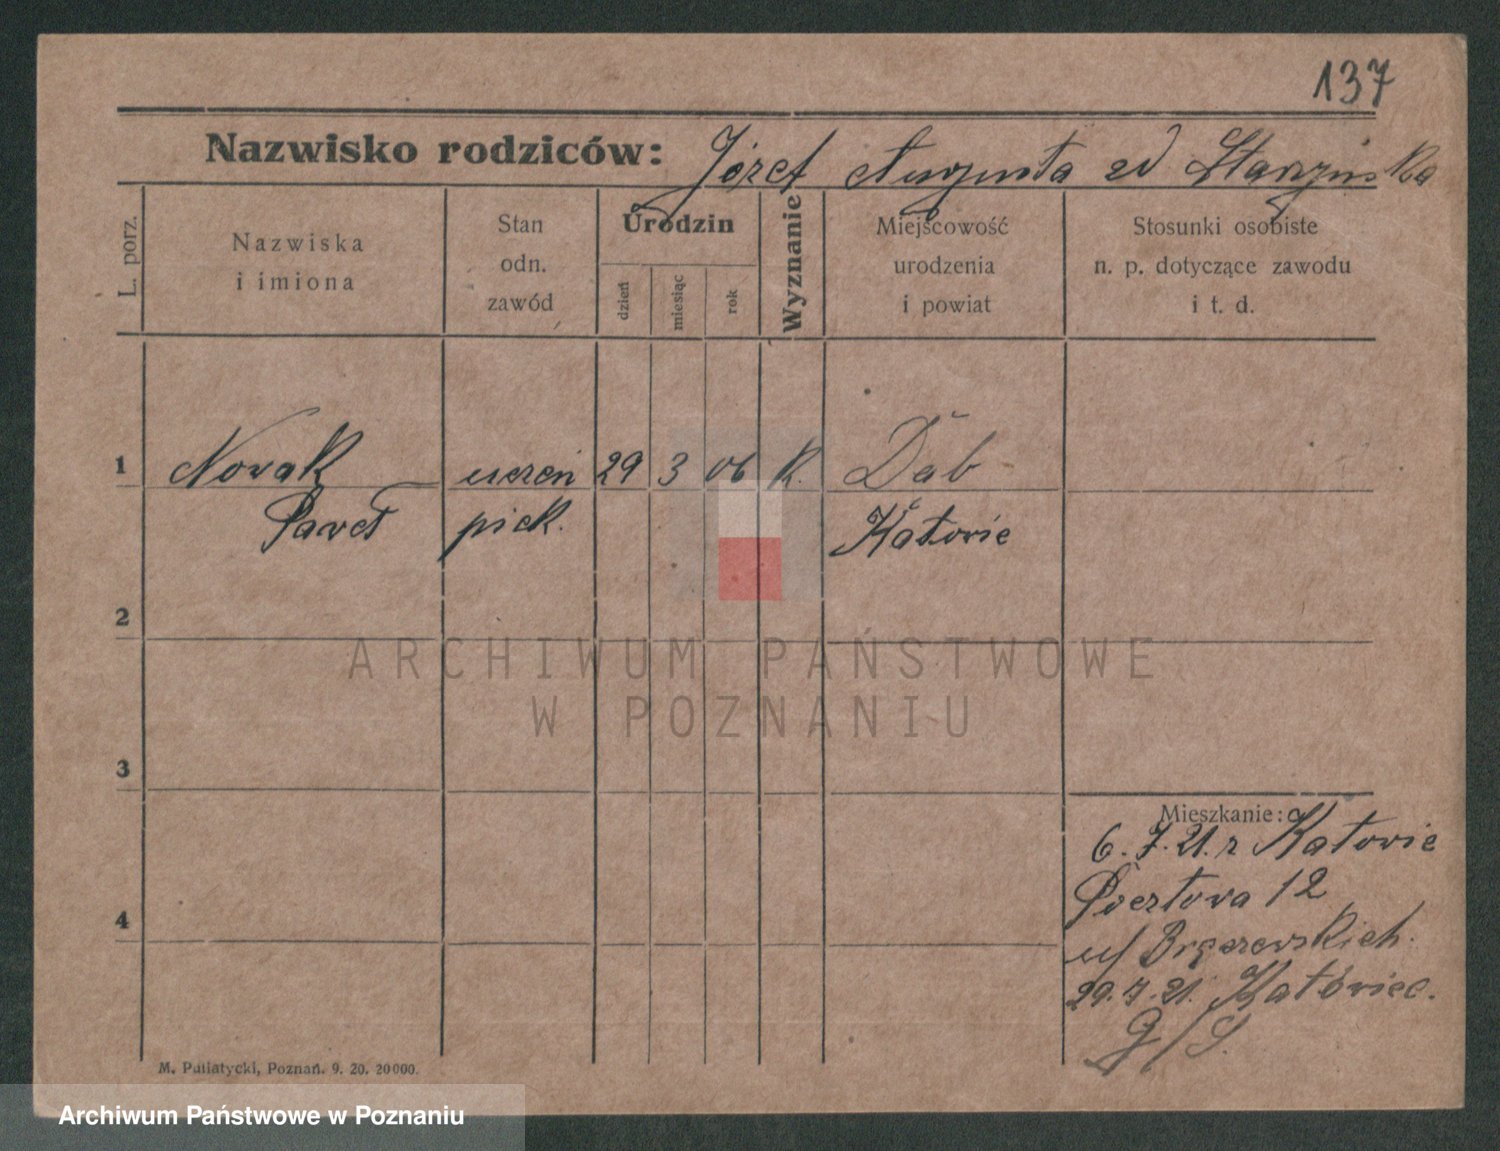 137
Nazwisko rodziców: Józef Augusta zd
L. porz.
Nazwiska
i imiona
Stan
odn.
zawód
Urodzin
dzień
miesiąc
rok
Wyznanie
Miejscowość
urodzenia
i powiat
Stosunki osobiste
n. p. dotyczące zawodu
i t. d.
1 Nowak uczeń 29 3 06 K. Dąb
Paweł piek. Katowic
2
3
4
ARCHIWUM PAŃSTWOWE
W POZNANIU
Mieszkanie:
6.7.21. z Katowic
12
u/
29.7.21. Katowice.
G/S.
M. Putiatycki, Poznań. 9. 20. 20000.
Archiwum Państwowe w Poznaniu